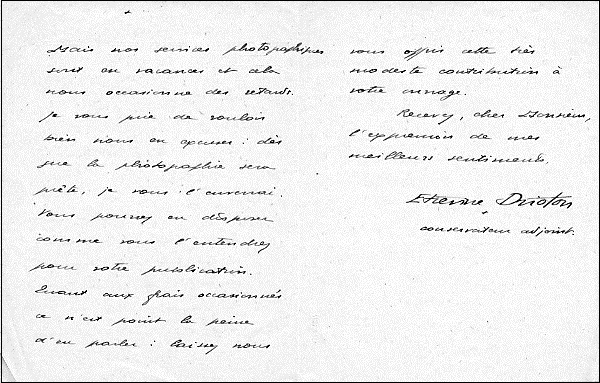 Mais nos services photographiques
sont en vacances et cela
nous occasionne des retards.
Je vous prie de vouloir
bien nous en excuser : dès
que la photographie sera
prête, je vous l'enverrai.
Vous pourrez en disposer
comme vous l'entendrez
pour votre publication.
Quant aux frais occasionnés
ce n'est point la peine
d'en parler : laissez nous
vous offrir cette très
modeste contribution à
votre ouvrage.
Recevez, cher Monsieur,
l'expression de mes
meilleurs sentiments.
Etienne Drioton
conservateur adjoint.